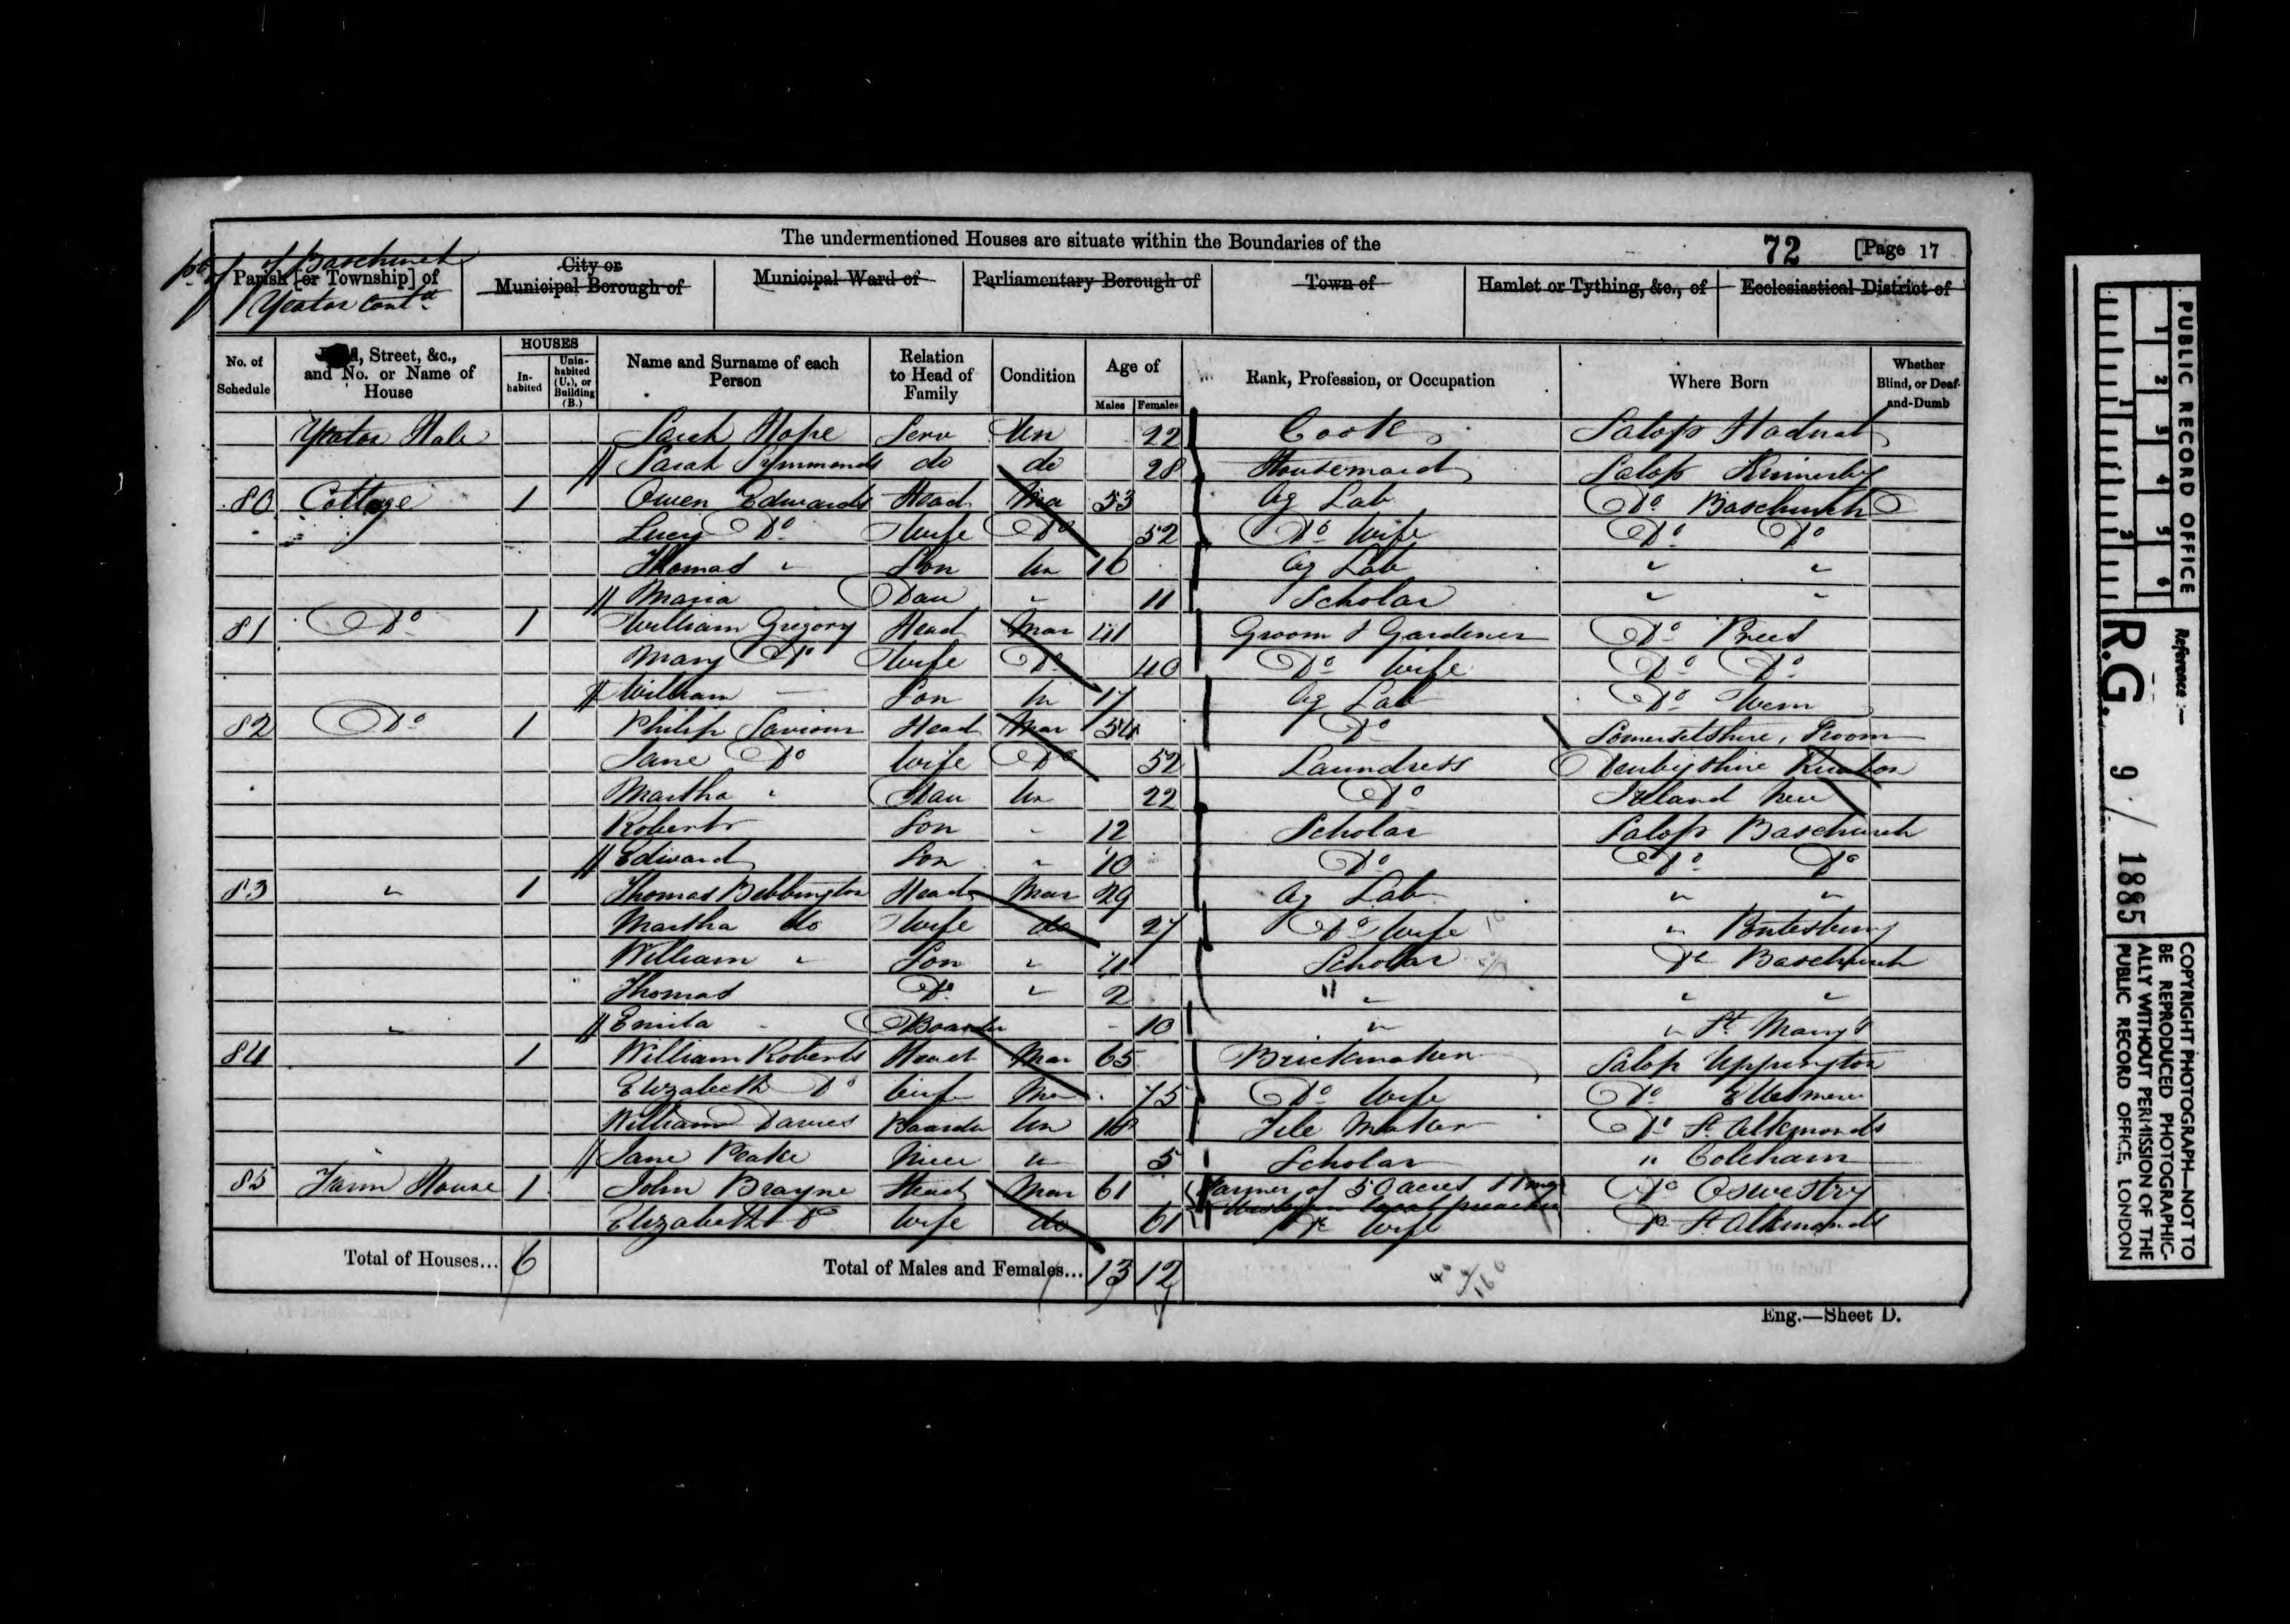 The undermentioned Houses are situate within the Boundaries of the
72 [Page 17
pt of Baschurch
Parish [or Township] of
Yeaton Contd
City or Municipal Borough of
Municipal Ward of
Parliamentary Borough of
Town of
Hamlet or Tything, &c., of
Ecclesiastical District of
No. of Schedule
Street, &c., and No. or Name of House
HOUSES
In-habited
Unin-habited (U.), or Building (B.)
Name and Surname of each Person
Relation to Head of Family
Condition
Age of
Males Females
Rank, Profession, or Occupation
Where Born
Whether Blind, or Deaf-and-Dumb
Sarah Hope Serv Un 22 Cook Salop Hadnal
// Sarah Symmonds do do 28 Housemaid Salop Kinnerley
80 Cottage 1 Owen Edwards Head Mar 53 Ag Lab Do Baschurch
Lucy Do Wife Do 52 Do Wife Do Do
Thomas " Son Un 16 Ag Lab " "
// Maria Dau " 11 Scholar " "
81 Do 1 William Gregory Head Mar 41 Groom & Gardener Do Prees
Mary Do Wife Do 40 Do Wife Do Do
// William — Son Un 17 Ag Lab Do Wem
82 Do 1 Philip Saviour Head Mar 54 Do Somersetshire, Froom
Jane Do Wife Do 52 Laundress Denbighshire Ruabon
Martha " Dau Un 22 Do Ireland
Robert Son " 12 Scholar Salop Baschurch
// Edward Son " 10 Do Do Do
83 " 1 Thomas Bebbington Head Mar 29 Ag Lab " "
Martha do Wife do 27 Do Wife " Pontesbury
William " Son " 4 Scholar Do Baschurch
Thomas Do " 2 " " "
" // Emila Boarder 10 " " St Mary's
84 1 William Roberts Head Mar 65 Brickmaker Salop Uppington
Elizabeth Do Wife Mar 75 Do Wife Do Ellesmere
William Davies Boarder Un 18 Tile Maker Do St Alkmonds
// Jane Peake Niece Un 5 Scholar " Coleham
85 Farm House 1 John Brayne Head Mar 61 Farmer of 50 acres Do Oswestry
Wesleyan local preacher
Elizabeth Do Wife do 61 Do Wife Do St Alkmonds
Total of Houses... 6
Total of Males and Females... 13 12
Eng.—Sheet D.
PUBLIC RECORD OFFICE
1 2 3 4 5 6
1 2
Reference :—
R.G. 9/1885
COPYRIGHT PHOTOGRAPH—NOT TO BE REPRODUCED PHOTOGRAPHIC-ALLY WITHOUT PERMISSION OF THE PUBLIC RECORD OFFICE, LONDON